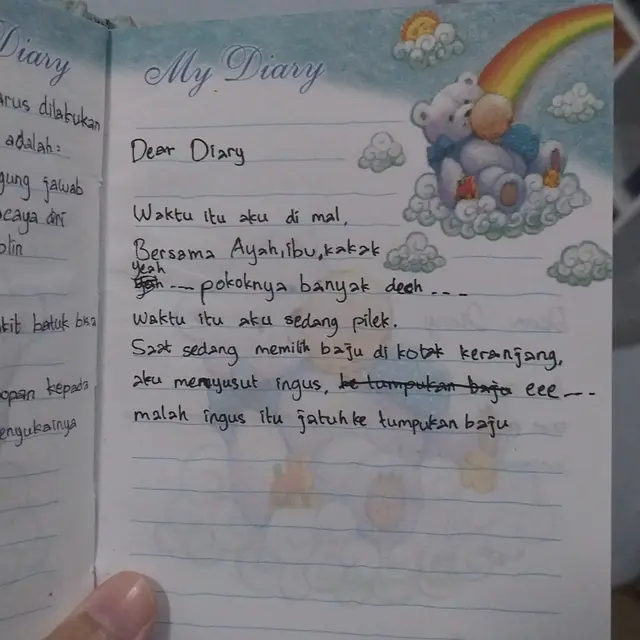 Diary
arus dilakukan
adalah:
gung jawab
caya diri
plin
kit batuk bisa
opan kepada
engukainya
My Diary
Dear Diary
Waktu itu aku di mal,
Bersama Ayah, ibu, kakak
yeah
--- pokoknya banyak deeh ---
Waktu itu aku sedang pilek.
Saat sedang memilih baju di kotak keranjang,
aku menyusut ingus, ke tumpukan baju eee ---
malah ingus itu jatuh ke tumpukan baju